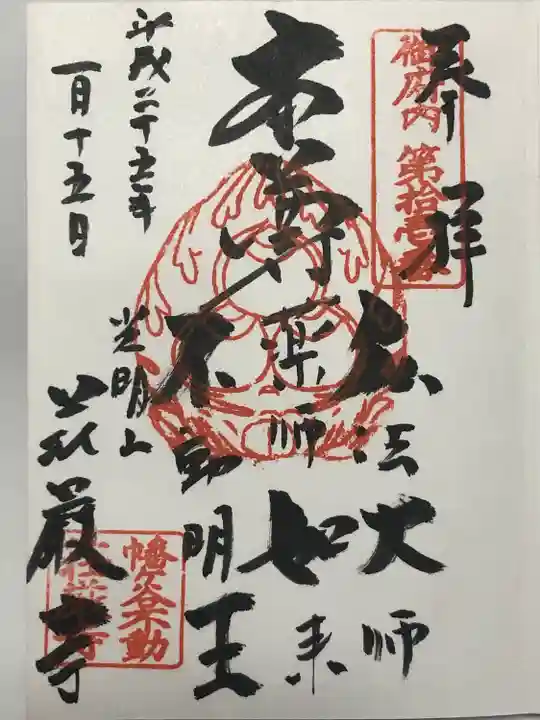 奉拝
御府内第拾壱番
弘法大師
本尊薬師如来
不動明王
光明山
荘厳寺
平成二十五年
一月十五日
幡ヶ谷不動